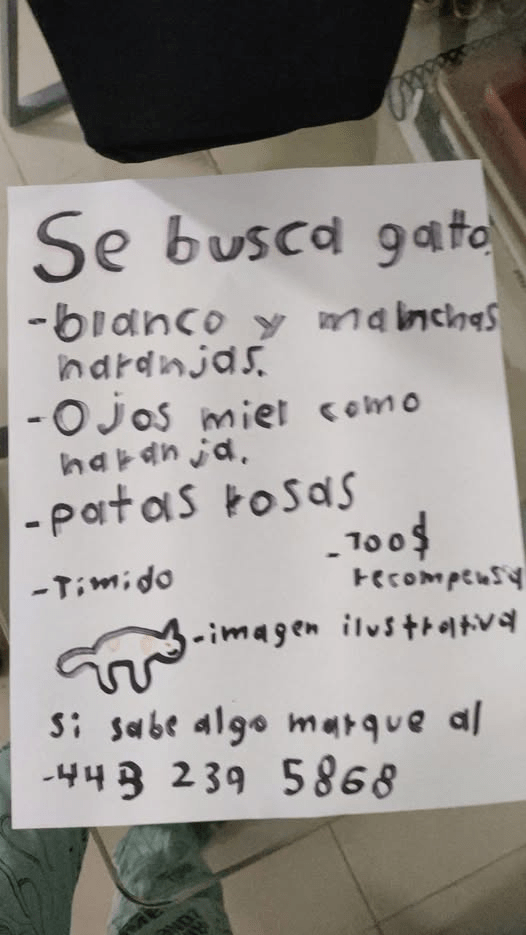 Se busca gato.
-blanco y manchas
naranjas.
-Ojos miel como
naranja.
-patas rosas
-Timido
-100$
recompensa
-imagen ilustrativa
si sabe algo marque al
-443 239 5868